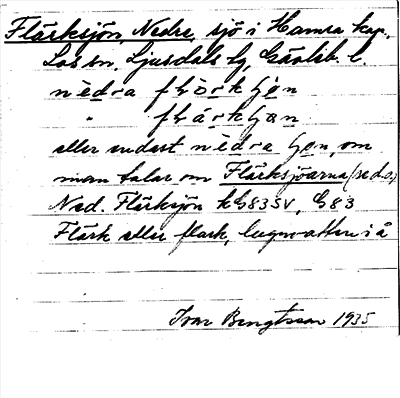 Flärksjön, Nedre, sjö i Hamra kap.,
Los sn, Ljusdals tg, Gävleb. l.
nèdra flärkʃön
" flärkʃan
eller endast nèdra ʃön, om
man talar om Flärksjöarna (se d.o.)
Ned. Flärksjön k G83SV, G83
Flärk eller flark, lugnvatten i å
Ivar Bengtsson 1935